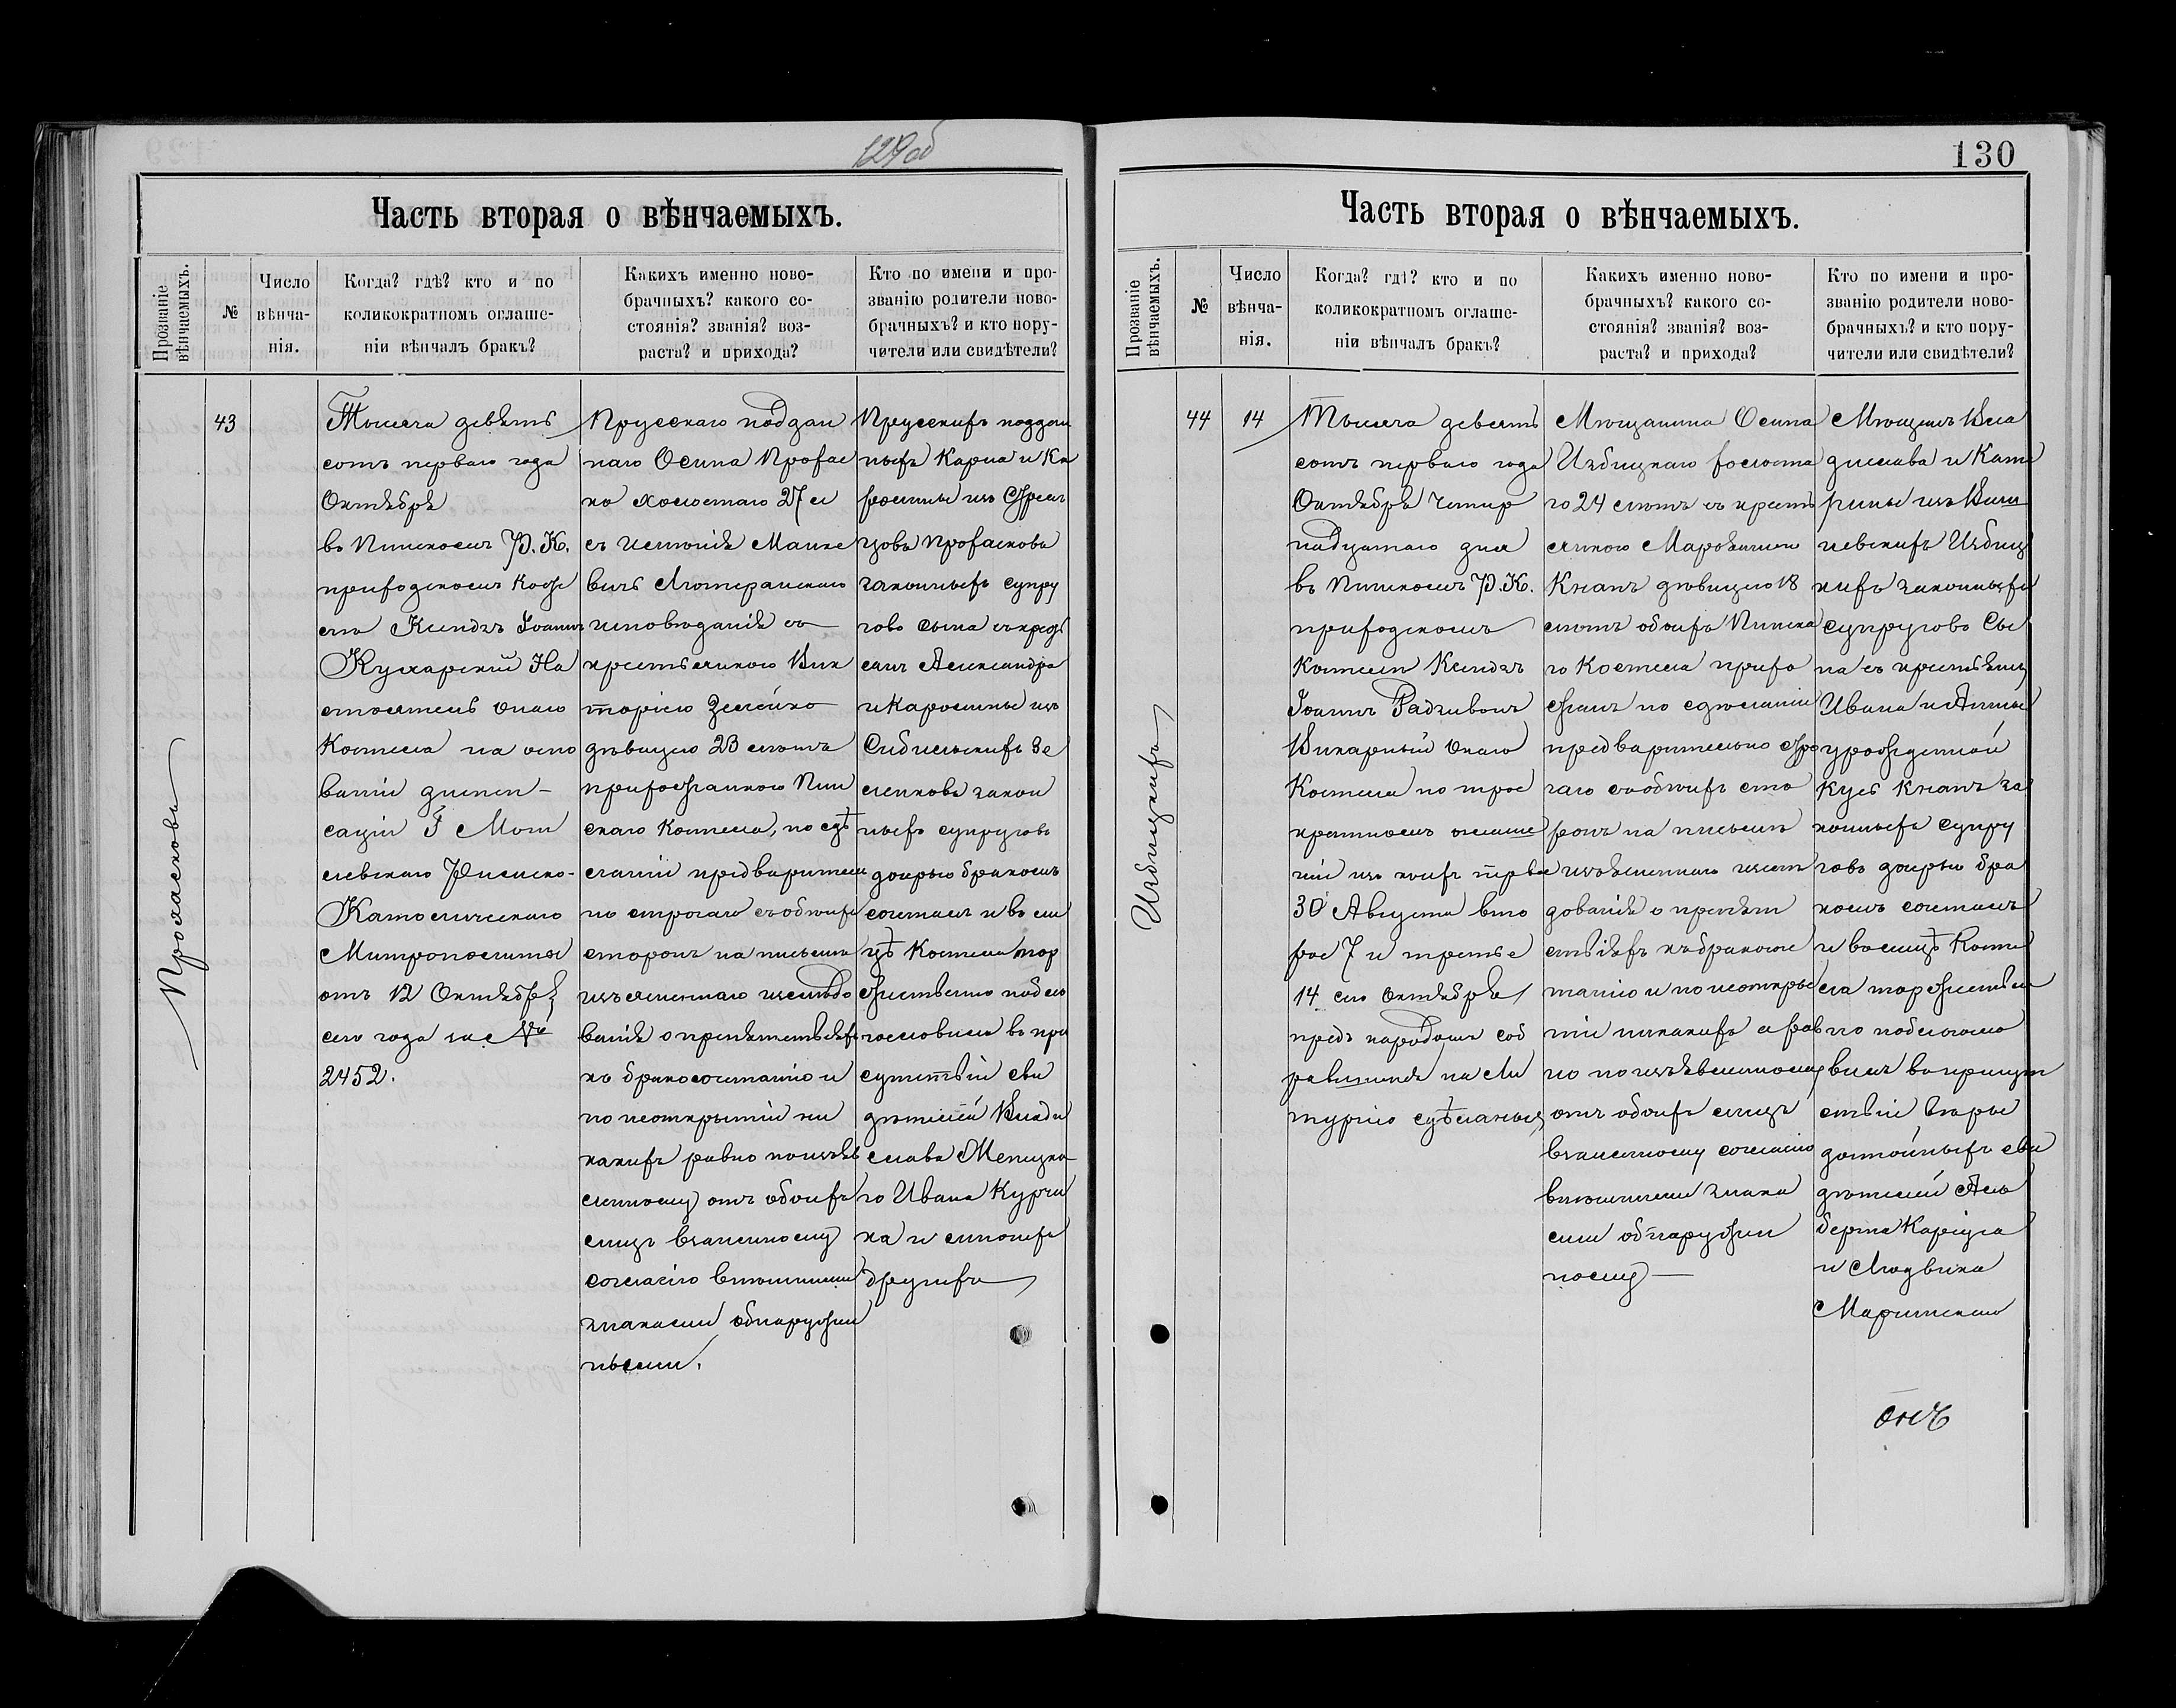 129об
Часть вторая о вѣнчаемыхъ.
Прозваніе вѣнчаемыхъ.
№
Число вѣнча-
нія.
Когда? гдѣ? кто и по
коликократномъ оглаше-
ніи вѣнчалъ бракъ?
Какихъ именно ново-
брачныхъ? какого со-
стоянія? званія? воз-
раста? и прихода?
Кто по имени и про-
званію родители ново-
брачныхъ? и кто пору-
чители или свидѣтели?
43
Тысяча девять
сотъ перваго года
Октября
въ Пинскомъ Р.К.
приходскомъ Косте
лѣ Ксендзъ Іоаннъ
Кухарскій На
стоятель онаго
Костела на осно
ваніи диспен-
саціи Моги
левскаго Римско-
Католическаго
Митрополита
отъ 12 Октября
сего года за №
2452.
Прусскаго поддан
наго Осипа Профас
ка холостаго 27 л
съ имѣнія
Лютеранскаго
исповѣданія съ
крестьянкою Вик
торіею
дѣвицею 23 лѣтъ
прихожанкою Пин
скаго Костела, по сдѣ
ланіи предварительн
но строгаго съ обоихъ
сторонъ на письмѣ
изъясненнаго изслѣдо
ванія о препятствіяхъ
къ бракосочетанію и
по неоткрытіи ни
какихъ равно по изъяв
ленному отъ обоихъ
лицъ взаимному
согласію внѣшними
знаками обнаружен
ными.
Прусскихъ поддан
ныхъ Карла и Ка
ролины изъ
Профасковъ
законныхъ супру
говъ сына съ
Александра
и Каролины изъ
закон
ныхъ супруговъ
дочерью бракомъ
сочеталъ и въ ли
цѣ Костела тор
жественно побла
гословилъ въ при
сутствіи сви
дѣтелей Влади
слава
го Ивана Курчи
ка и многихъ
другихъ
130
Часть вторая о вѣнчаемыхъ.
Прозваніе вѣнчаемыхъ.
№
Число вѣнча-
нія.
Когда? гдѣ? кто и по
коликократномъ оглаше-
ніи вѣнчалъ бракъ?
Какихъ именно ново-
брачныхъ? какого со-
стоянія? званія? воз-
раста? и прихода?
Кто по имени и про-
званію родители ново-
брачныхъ? и кто пору-
чители или свидѣтели?
Избицкихъ
44
14
Тысяча девять
сотъ перваго года
Октября четыр
надцатаго дня
въ Пинскомъ Р.К.
приходскомъ
Костелѣ Ксендзъ
Іоаннъ Радзивонъ
Викарный онаго
Костела по трое
кратномъ оглаше
ніи изъ коихъ первое
30 Августа вто
рое 7 и третье
14 сего Октября
предъ народомъ соб
равшимся на Ли
тургію сдѣланныхъ
Мѣщанина Осипа
Избицкаго холоста
го 24 лѣтъ съ кресть
янкою Маріянною
Кнапъ дѣвицею 18
лѣтъ обоихъ Пинска
го Костела прихо
жанъ по сдѣланіи
предварительно стро
гаго съ обоихъ сто
ронъ на письмѣ
изъясненнаго изслѣ
дованія о препят
ствіяхъ къ бракосоче
танію и по неоткры
тіи никакихъ а рав
но по изъявленному
отъ обоихъ лицъ
взаимному согласію
внѣшними знака
ми обнаружен
ному
Мѣщанъ Вла
дислава и Кате
рины изъ
Избиц
кихъ законныхъ
супруговъ сы
на съ крестьянъ
Ивана и Анны
урожденной
Кнапъ за
конныхъ супру
говъ дочерью бра
комъ сочеталъ
и въ лицѣ Косте
ла торжествен
но поблагосло
вилъ въ присут
ствіи вѣры
достойныхъ сви
дѣтелей Аль
берта
и Людвика